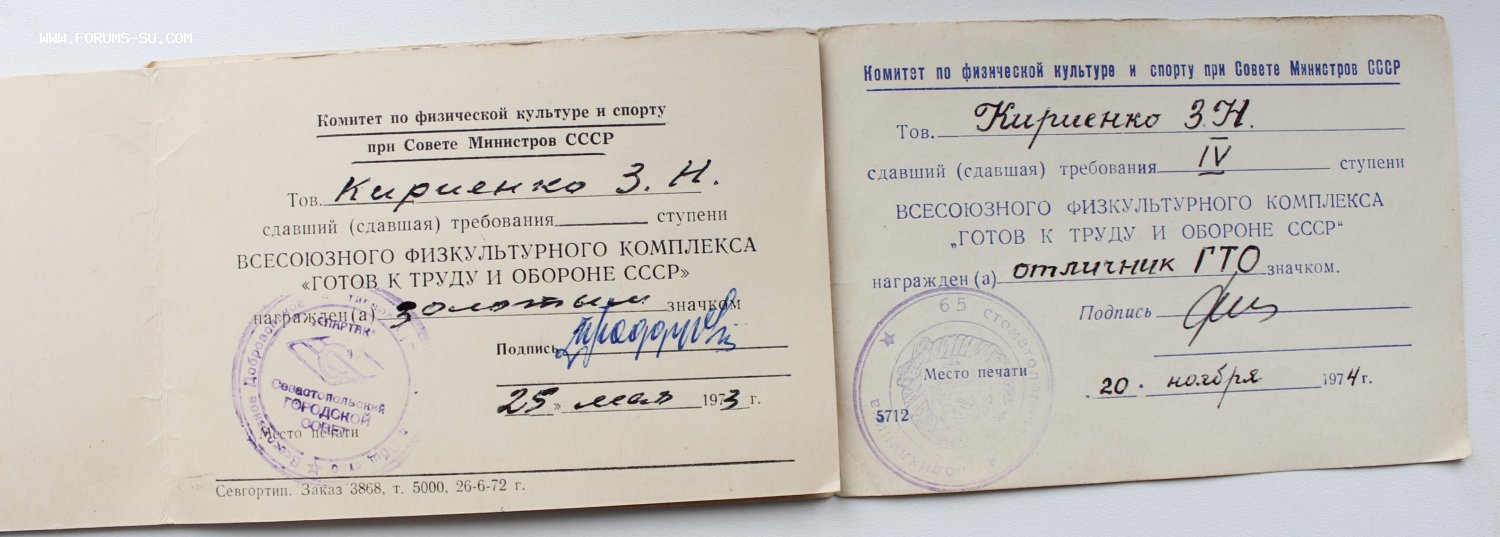 WWW.FORUMS-SU.COM
Комитет по физической культуре и спорту
при Совете Министров СССР
Тов. Кириенко З. Н.
сдавший (сдавшая) требования ступени
ВСЕСОЮЗНОГО ФИЗКУЛЬТУРНОГО КОМПЛЕКСА
«ГОТОВ К ТРУДУ И ОБОРОНЕ СССР»
награжден (а) золотым значком
Подпись
25 » мая 1973 г.
Место печати
Всесоюзное Добровольное
"СПАРТАК"
Севастопольский
ГОРОДСКОЙ
СОВЕТ
Севгортип. Заказ 3868, т. 5000, 26-6-72 г.
Комитет по физической культуре и спорту при Совете Министров СССР
Тов. Кириенко З.Н.
сдавший (сдавшая) требования IV ступени
ВСЕСОЮЗНОГО ФИЗКУЛЬТУРНОГО КОМПЛЕКСА
„ГОТОВ К ТРУДУ И ОБОРОНЕ СССР“
награжден (а) отличник ГТО значком.
Подпись
Место печати
20 · ноября 1974 г.
5712
65